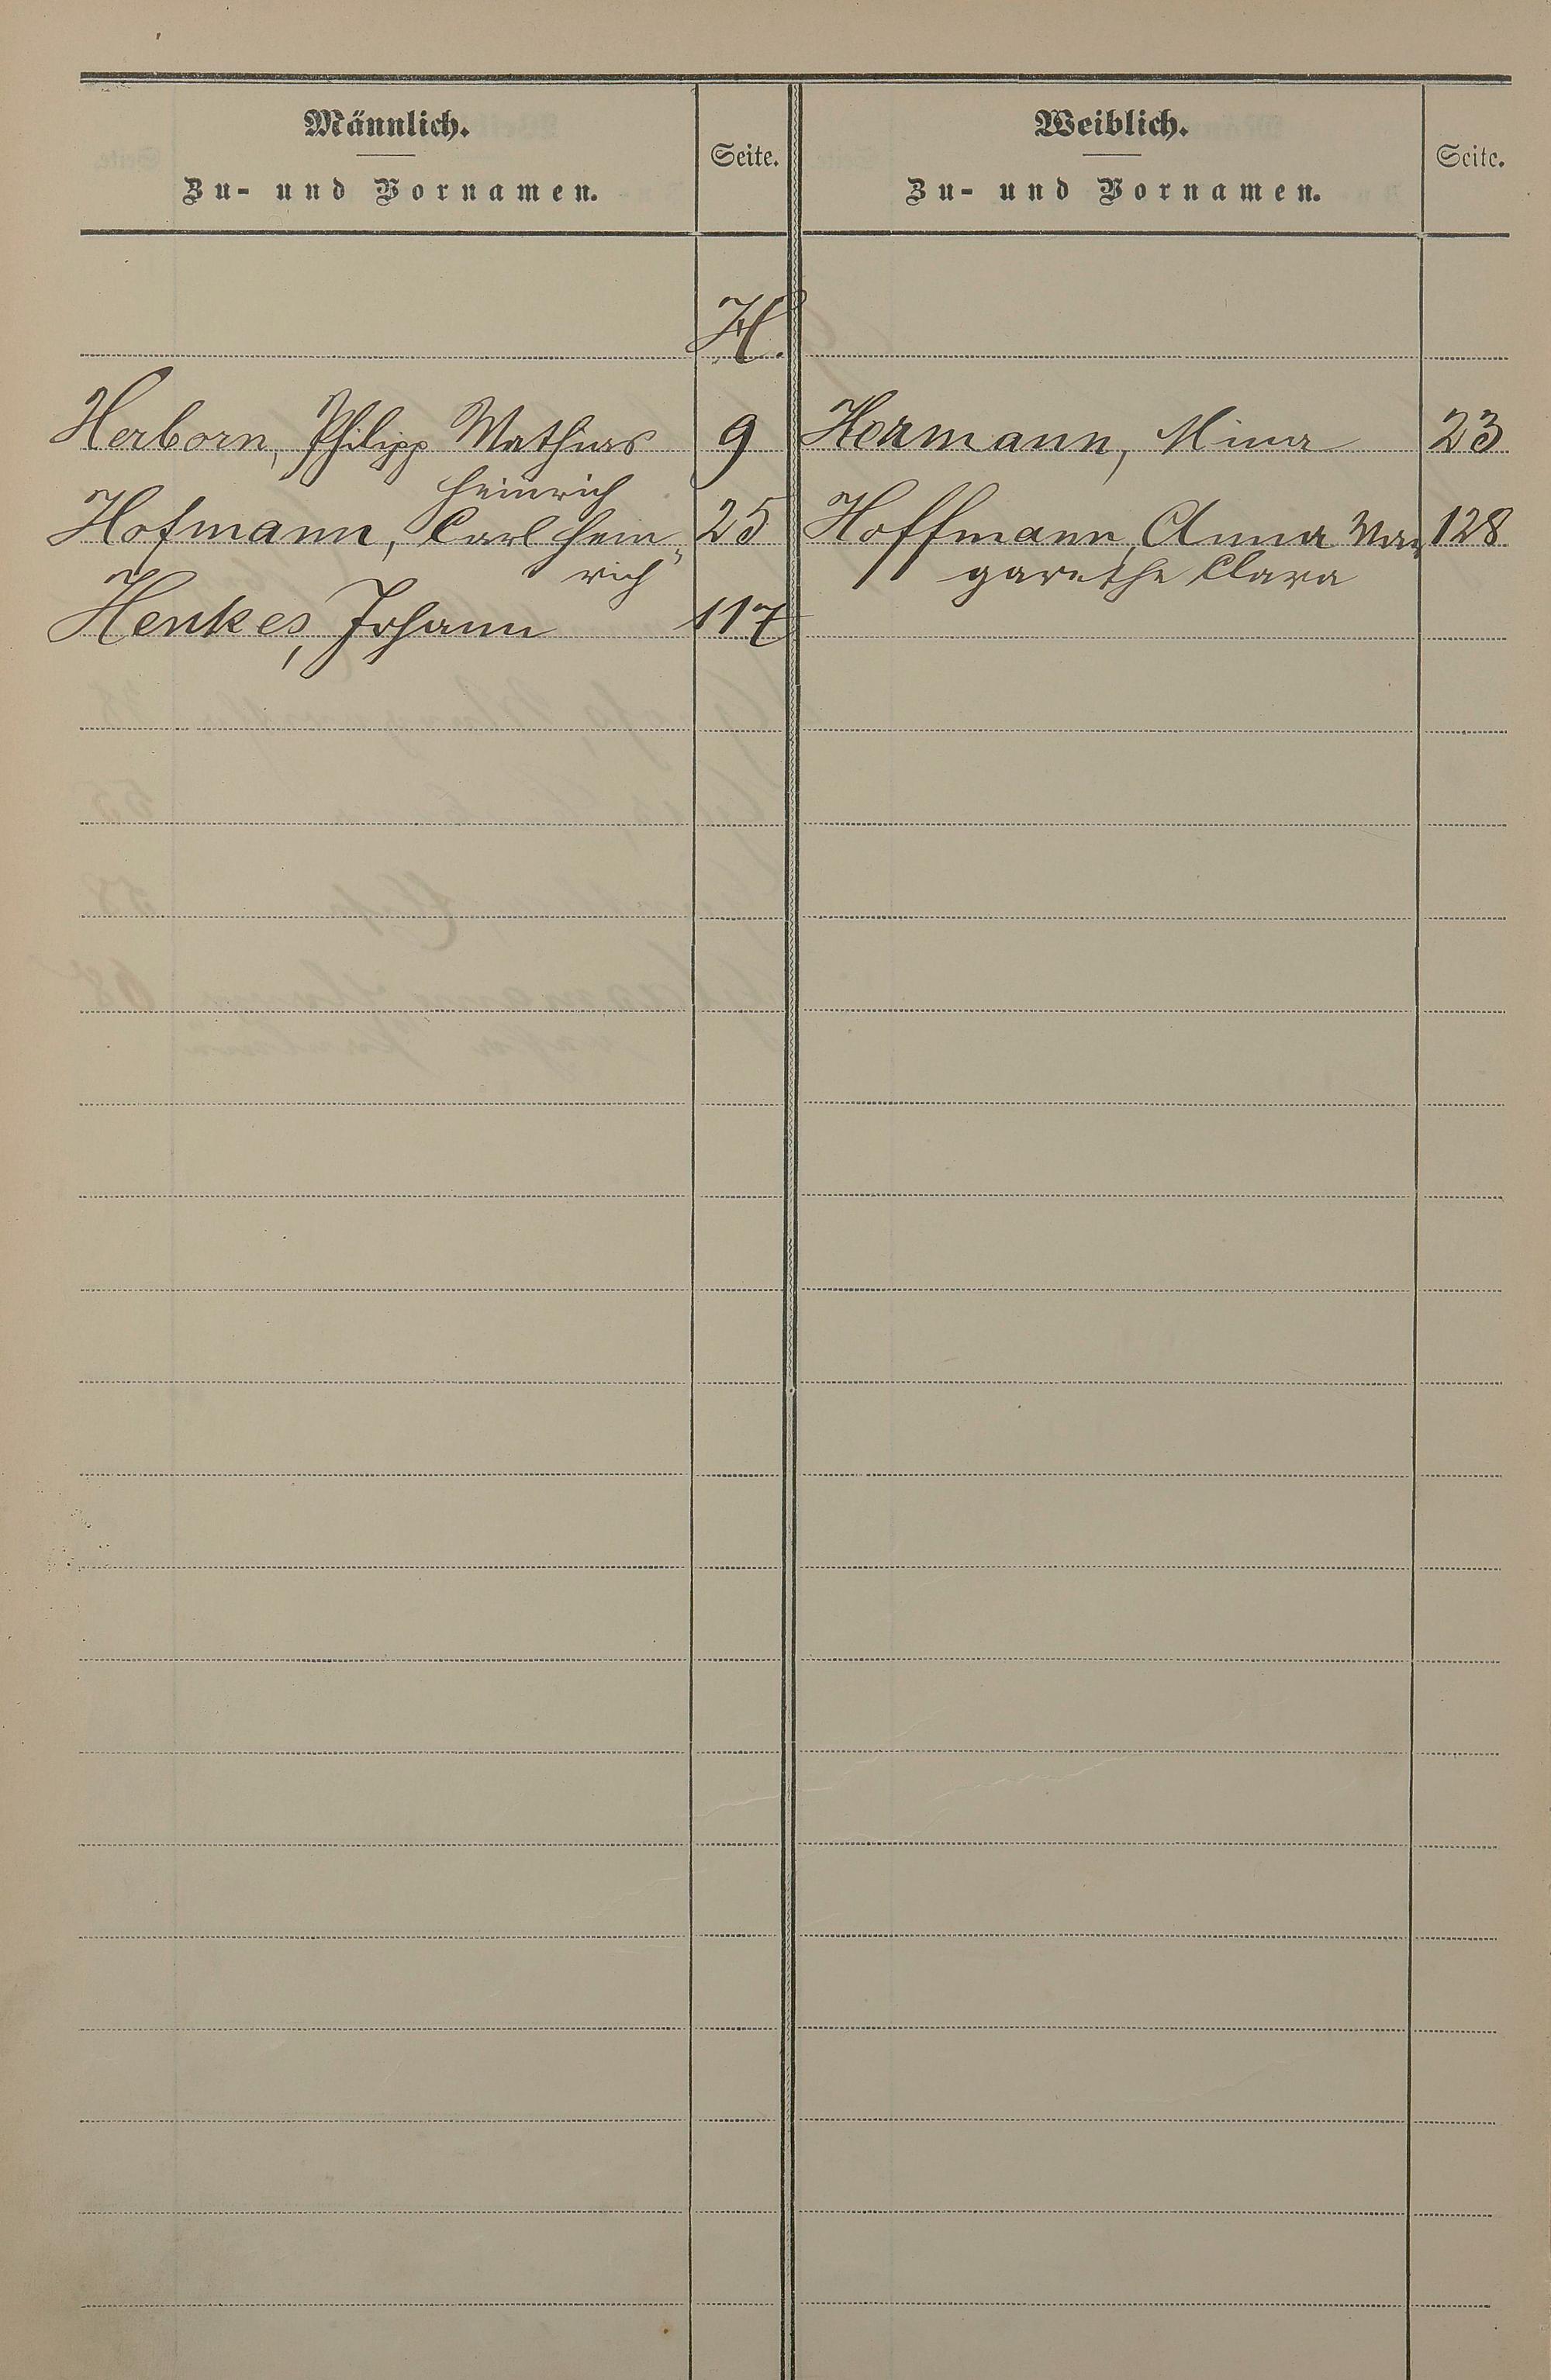 Männlich.
Zu- und Vornamen.
Seite.
Weiblich.
Zu- und Vornamen.
Seite.
H.
Herborn, Philipp Mathias 9
Heinrich
Hofmann, Carl Hein- 25
rich
Henkes, Johann 117
Hermann, Mina 23
Hoffmann, Anna Mar- 128
garethe Clara